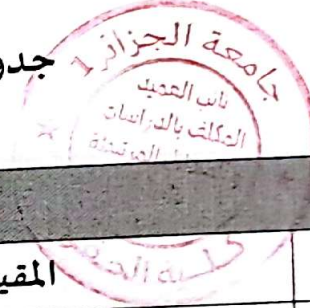 جدو
جامعة الجزائر 1
نائب العميد
المكلف بالدراسات
كلية
المقي